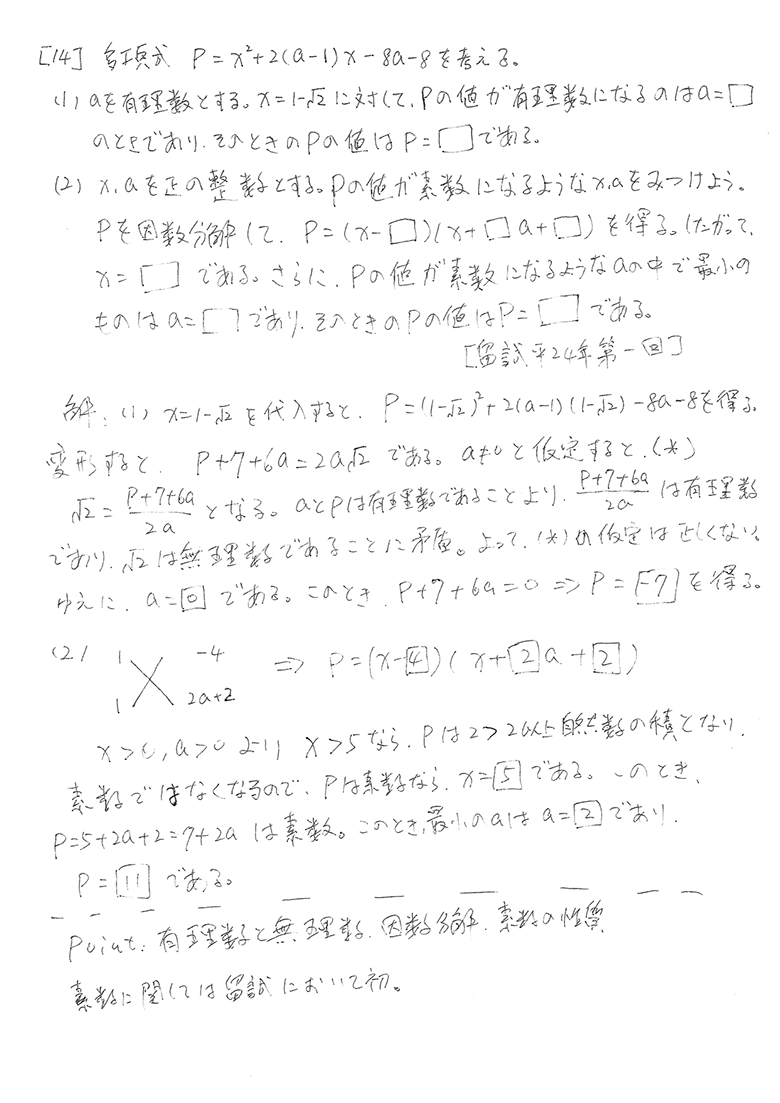 [14] 多項式 P=x²+2(a-1)x-8a-8を考える。
(1) aを有理数とする。x=1-√2に対して、Pの値が有理数になるのはa=□
のときであり、そのときのPの値はP=□である。
(2) x,aを正の整数とする。Pの値が素数になるようなx,aをみつけよう。
Pを因数分解して、P=(x-□)(x+□a+□)を得る。したがって、
x=□である。さらに、Pの値が素数になるようなaの中で最小の
ものはa=□であり、そのときのPの値はP=□である。
[留試平24年第一回]
解:(1) x=1-√2を代入すると、P=(1-√2)²+2(a-1)(1-√2)-8a-8を得る。
変形すると、P+7+6a=2a√2である。a≠0と仮定すると、(*)
√2=(P+7+6a)/(2a)となる。aとPは有理数であることより、(P+7+6a)/(2a)は有理数
であり、√2は無理数であることに矛盾。よって、(*)の仮定は正しくない。
ゆえに、a=[0]である。このとき、P+7+6a=0⇒P=[-7]を得る。
(2) 1 -4 ⇒ P=(x-[4])(x+[2]a+[2])
1 2a+2
x>0,a>0より x>5なら、Pは2つ2以上自然数の積となり、
素数ではなくなるので、Pは素数なら、x=[5]である。このとき、
P=5+2a+2=7+2aは素数。このとき、最小のaはa=[2]であり、
P=[11]である。
Point:有理数と無理数、因数分解、素数の性質
素数に関しては留試において初。